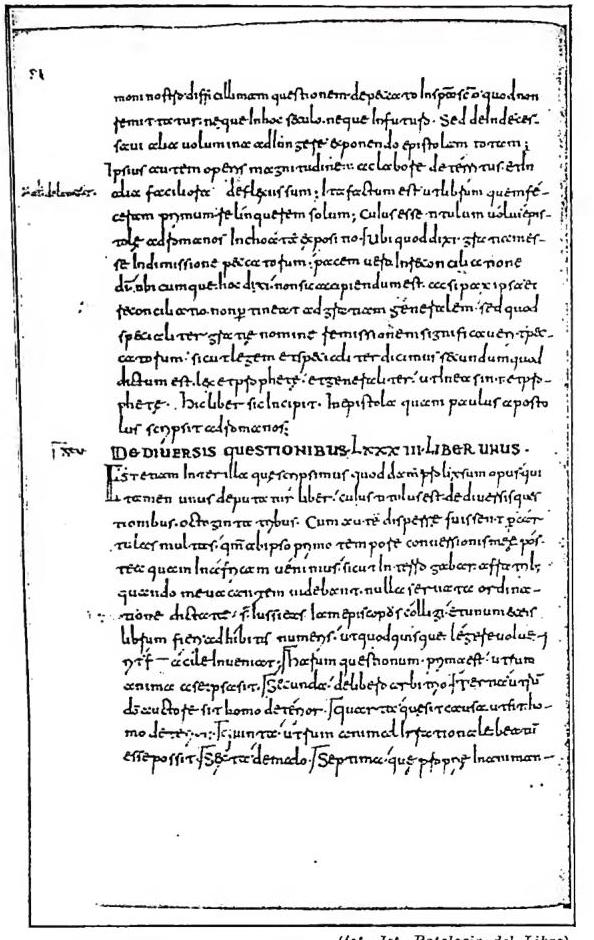 moni nostro difficillimam questionem de peccato in spm scm quod non
remittatur neque in hoc seculo neque in futuro. Sed deinde ces-
savi alia volumina adlongere exponendo epistolam totam;
Ipsius autem operis magnitudine ac labore deterritus et in
alia faciliora deflexus sum; Ita factum est ut librum quem fe-
ceram primum relinquerem solum; Cuius esse titulum volui epis-
tole ad romanos inchoata expositio. Ubi quod dixi gratiam es-
se in dimissione peccatorum; pacem vero in reconciliatione
di. ubicumque hoc dixi non sic accipiendum est acsi pax ipsa et
reconciliatio non pertineat ad gratiam generalem. sed quod
specialiter gratie nomine remissionem significaverit pec-
catorum. sicut legem et specialiter dicimus secundum quod
dictum est. lex et prophete. et generaliter. ut in ea sint et pro-
phete. Hic liber sic incipit. In epistola quam paulus aposto
lus scripsit ad romanos;
XXV DE DIVERSIS QUESTIONIBUS LXXXIII LIBER UNUS.
Est etiam inter illa que scripsimus quoddam prolixum opus qui
tamen unus deputatur liber. cuius titulus est de diversis ques
tionibus octoginta tribus. Cum autem disperse fuissent p car
tulas multas. qm ab ipso primo tempore conversionis mee pos-
tea quam in africam venimus. sicut interrogabar a fratribus
quando me vacantem videbant. nulla servata ordina-
tione dictate s. Iussi eas iam episcopus colligi et unum ex eis
librum fieri adhibitis numeris. ut quod quisque legere voluerit
facile inveniat. Harum questionum prima est utrum
anima a se ipsa sit. Secunda de libero arbitrio. Tertia utrum
do auctore sit homo deterior. quarta que sit causa ut sit ho-
mo deterior. quinta utrum animal irrationale beatum
esse possit. Sexta de malo. Septima que proprie in animan-